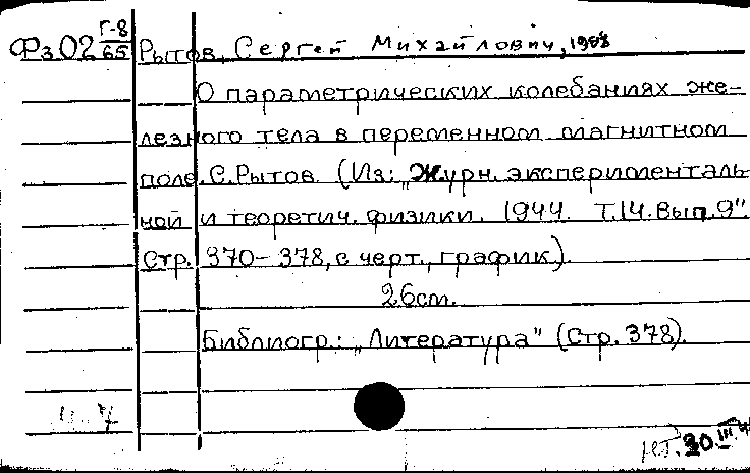 Фз.02 Г-8/65 Рытов, Сергей Михайлович, 1908
О параметрических колебаниях же-
лезного тела в переменном магнитном
поле. С. Рытов. (Из: „Журн. эксперименталь
ной и теоретич. физики. 1944. Т.14. Вып. 9"
Стр. 370-378, с черт., график).
26см.
Библиогр.: „Литература" (Стр. 378).